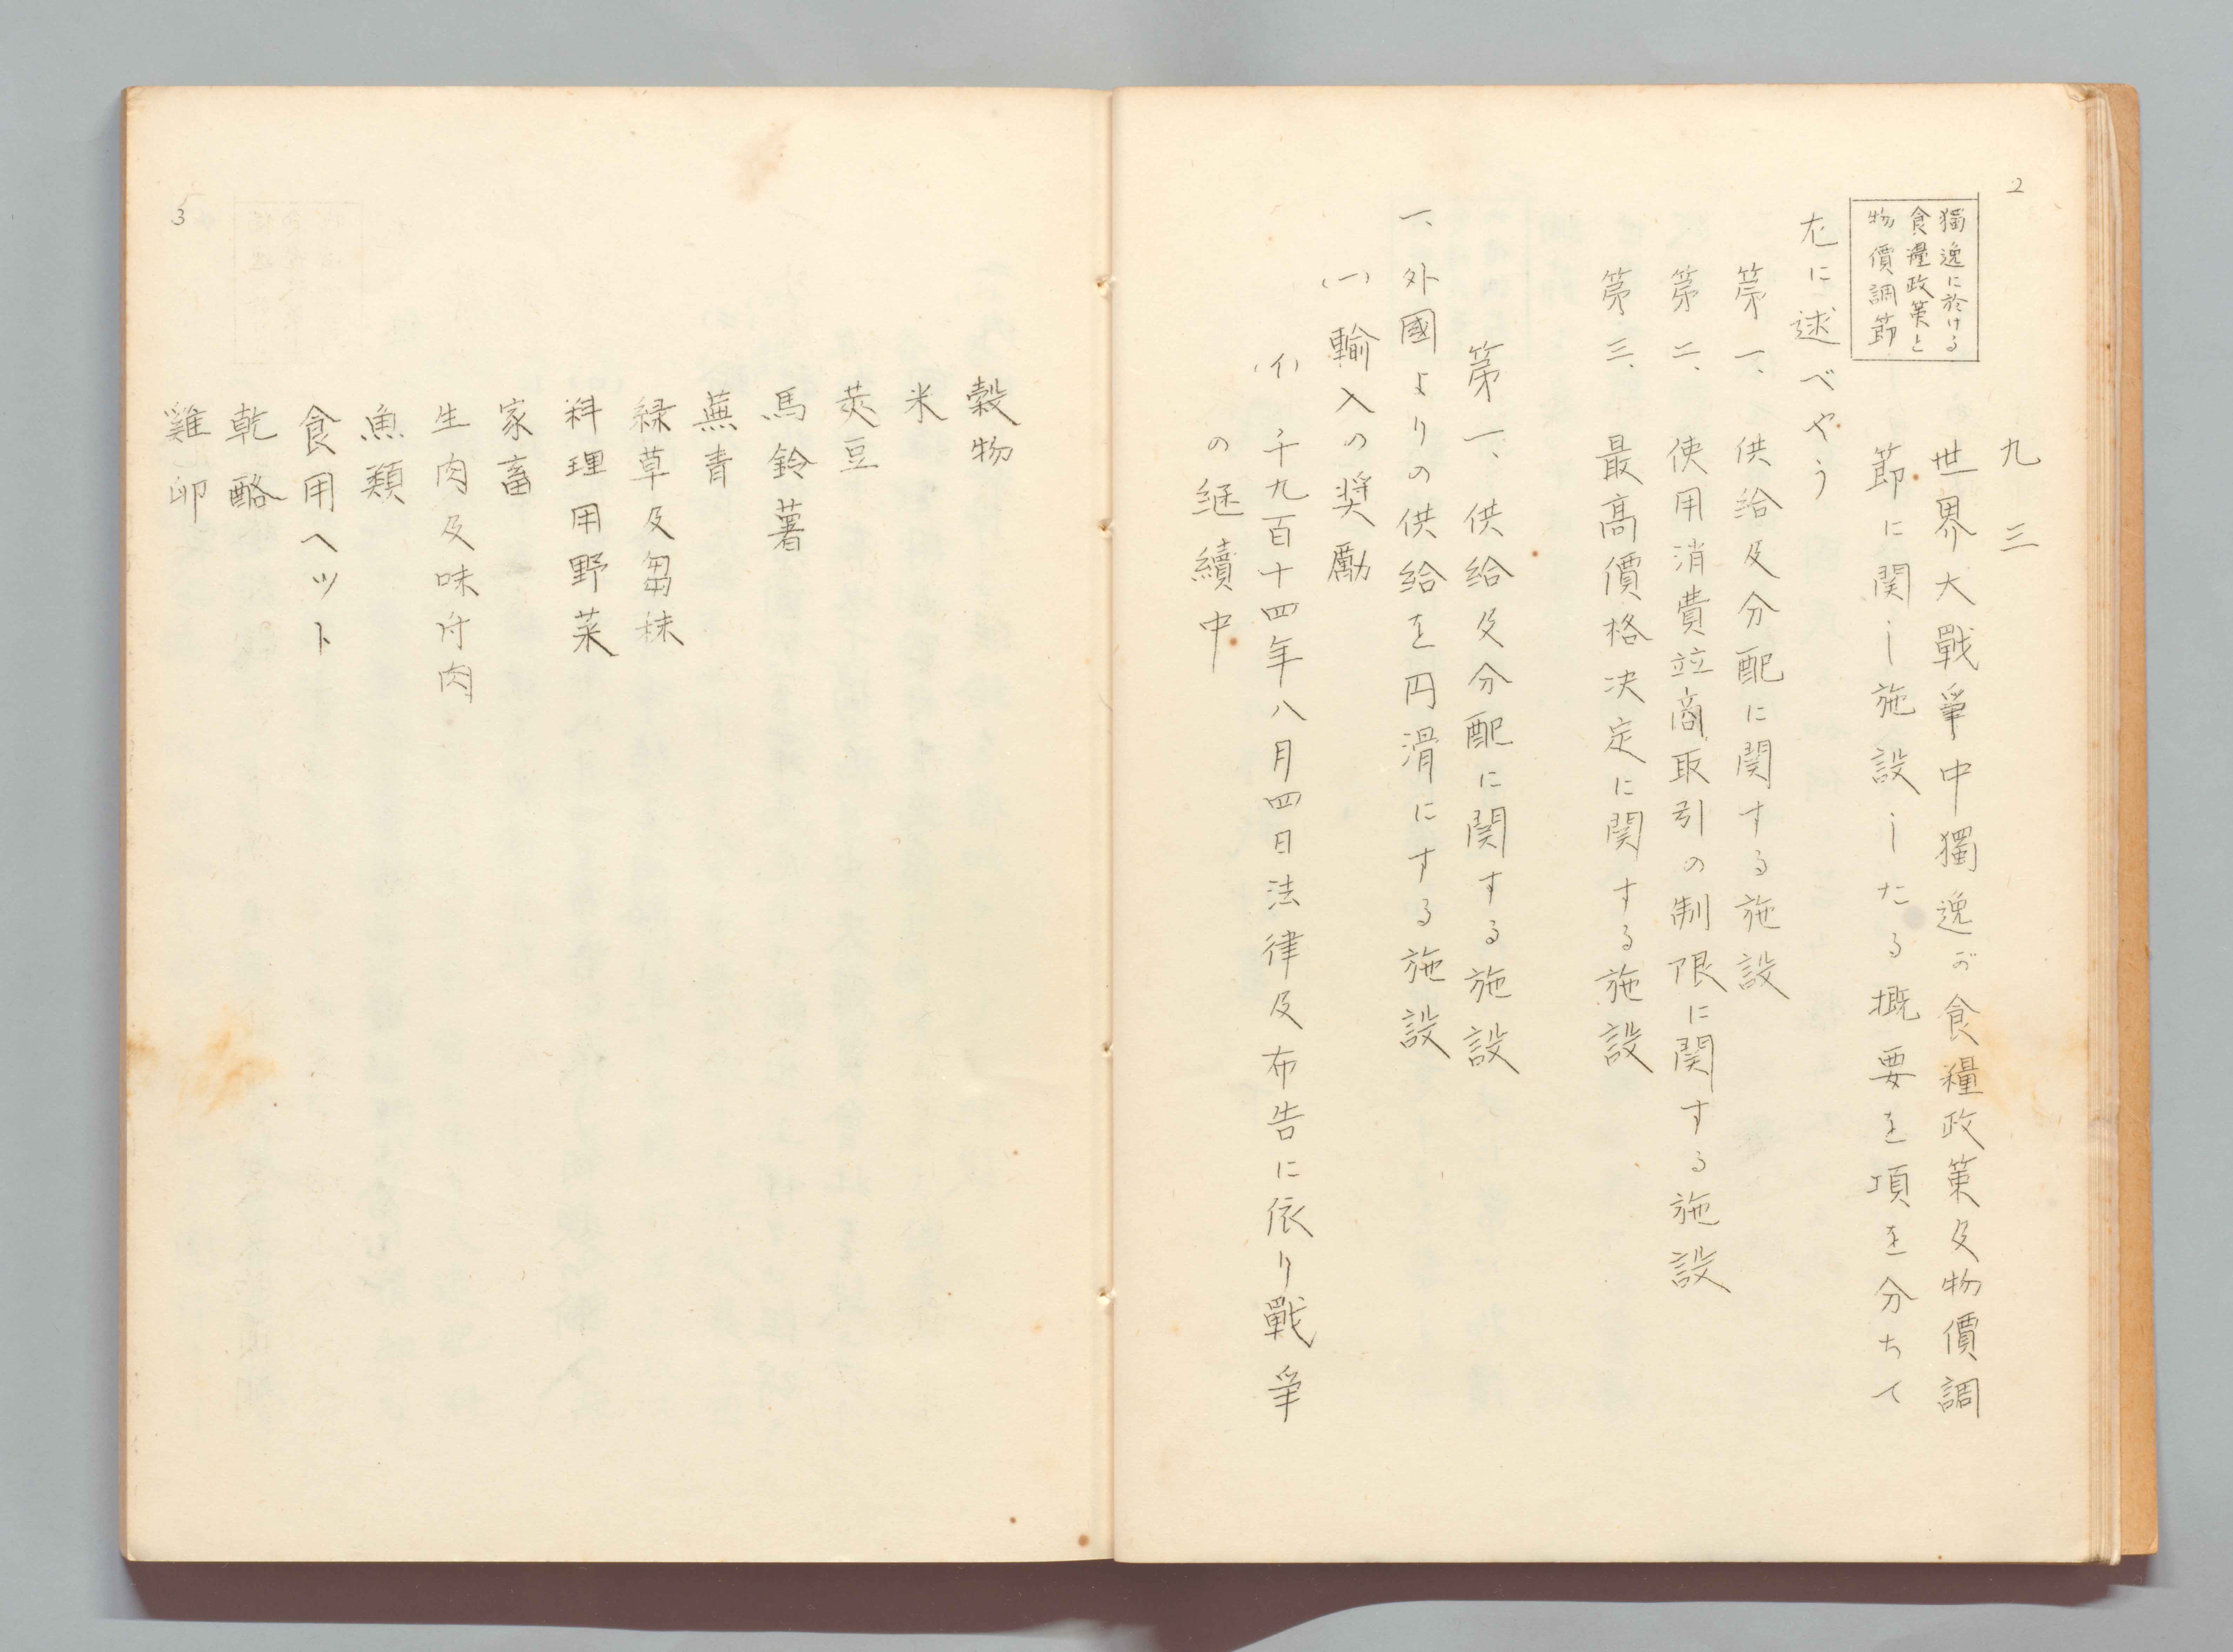 2
獨逸に於ける
食糧政策と
物價調節
九三
世界大戰爭中獨逸が食糧政策及物價調
節に関し施設したる概要を項を分ちて
左に述べやう
第一、供給及分配に関する施設
第二、使用消費並商取引の制限に関する施設
第三、最高價格决定に関する施設
第一、供給及分配に関する施設
一、外國よりの供給を円滑にする施設
(一)輸入の奨勵
(イ)千九百十四年八月四日法律及布告に依り戰爭
の継續中
穀物
米
莢豆
馬鈴薯
蕪青
緑草及芻秣
料理用野菜
家畜
生肉及味付肉
魚類
食用ヘット
乾酪
雞卵
3